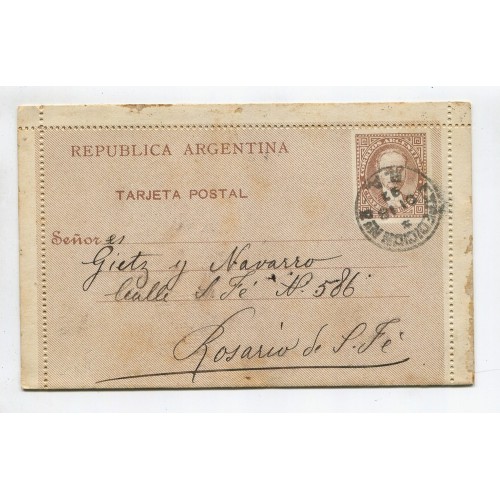 REPUBLICA ARGENTINA
TARJETA POSTAL
Señores
Gietz y Navarro
Calle S. Fé Nº 586
Rosario de S. Fé